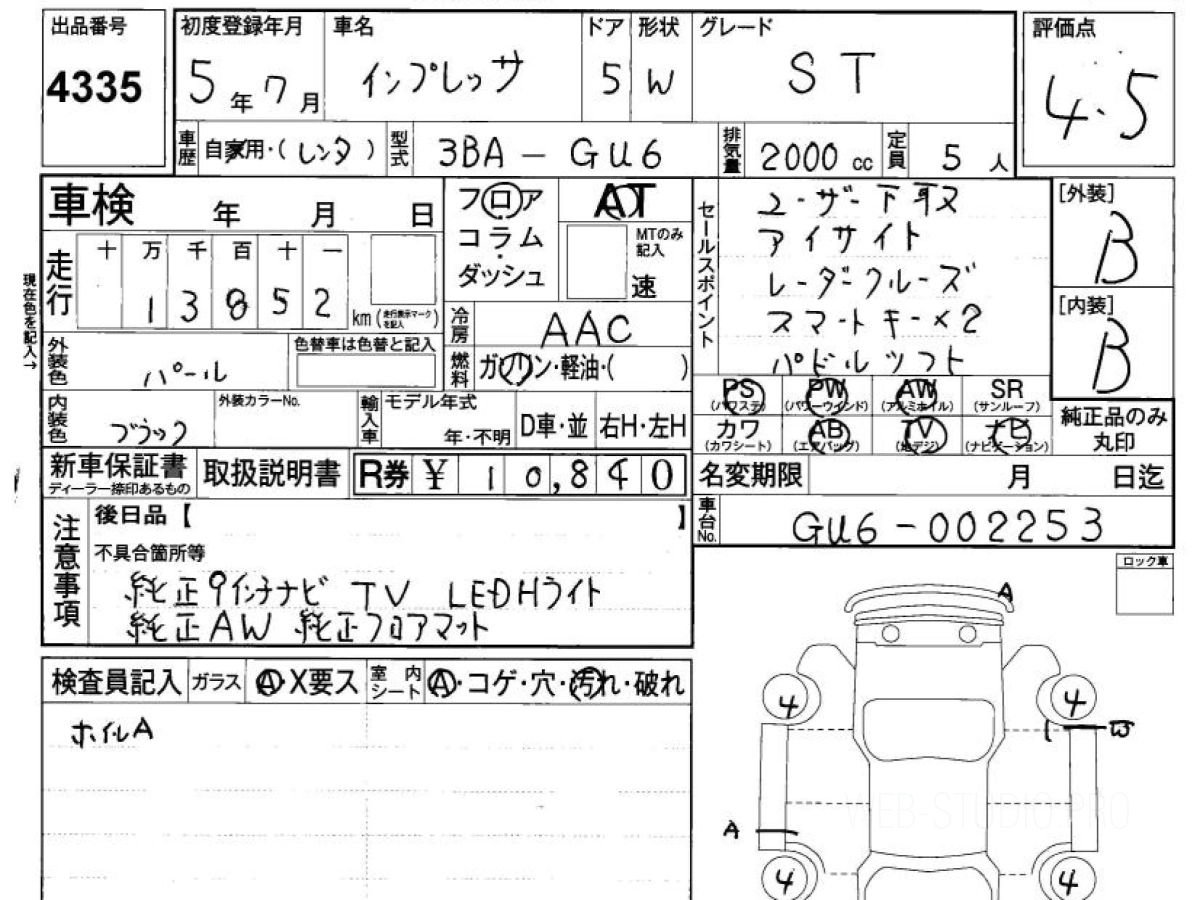 出品番号 4335
初度登録年月 5年7月
車名 インプレッサ
ドア 5
形状 W
グレード ST
評価点 4.5
車歴 自家用・(レンタ)
型式 3BA-GU6
排気量 2000cc
定員 5人
車検 年 月 日
フロア
コラム・
ダッシュ
AT
MTのみ
記入
速
セールスポイント
ユーザー下取
アイサイト
レーダークルーズ
スマートキー×2
パドルシフト
[外装] B
[内装] B
現在色を記入→
走行 十 万 千 百 十 一
13852 km(走行表示マークを記入)
冷房 AAC
外装色 パール
色替車は色替と記入
燃料 ガソリン・軽油・( )
PS (パワステ)
PW (パワーウインド)
AW (アルミホイル)
SR (サンルーフ)
カワ (カワシート)
AB (エアバッグ)
TV (地デジ)
ナビ (ナビゲーション)
純正品のみ
丸印
内装色 ブラック
外装カラーNo.
輸入車 モデル年式
年・不明
D車・並
右H・左H
新車保証書
ディーラー捺印あるもの
取扱説明書
R券 ¥ 10,840
名変期限 月 日迄
車台No. GU6-002253
注意事項
後日品【 】
不具合箇所等
純正9インチナビ TV LEDHライト
純正AW 純正フロアマット
ロック車
検査員記入
ガラス A・X要ス
室内シート A・コゲ・穴・汚れ・破れ
ホイルA
A
4
4
W
A
4
4
WEB-STUDIO.PRO